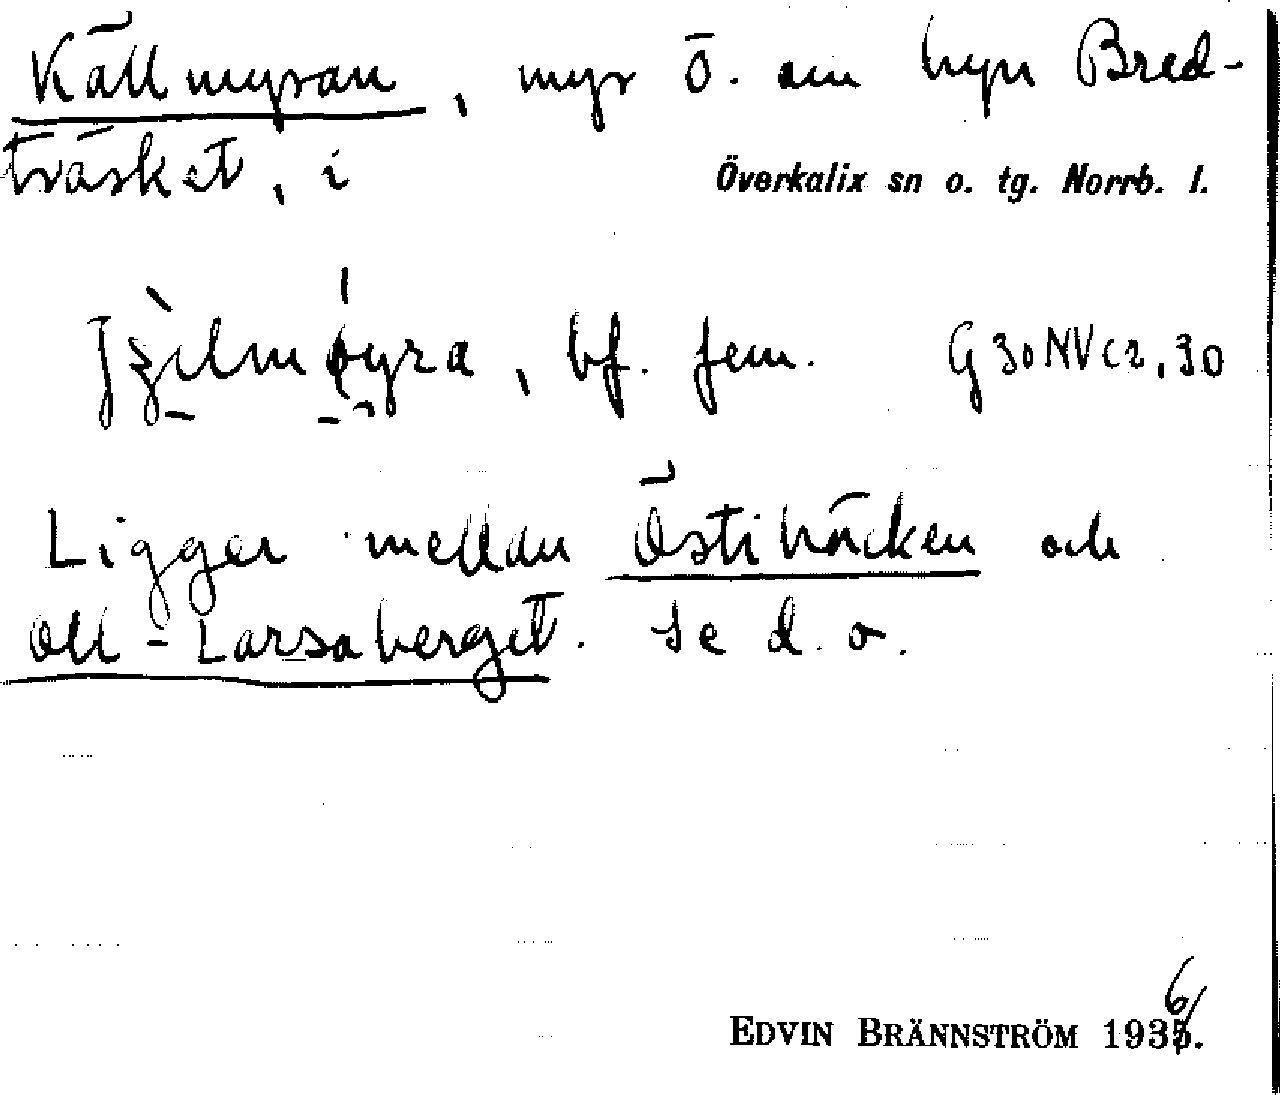 Källmyran, myr Ö. om byn Bred-
träsket, i Överkalix sn o. tg. Norrb. l.
bf. fem. G 30 NV c2, 30
Ligger mellan Östibäcken och
Oll-Larsaberget. Se d. o.
EDVIN BRÄNNSTRÖM 1936.